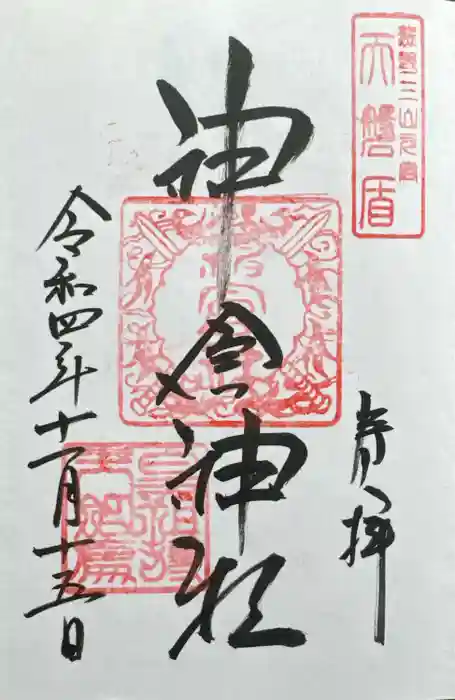 熊野三山元宮
天磐盾
奉拝
神倉神社
令和四年十一月十五日